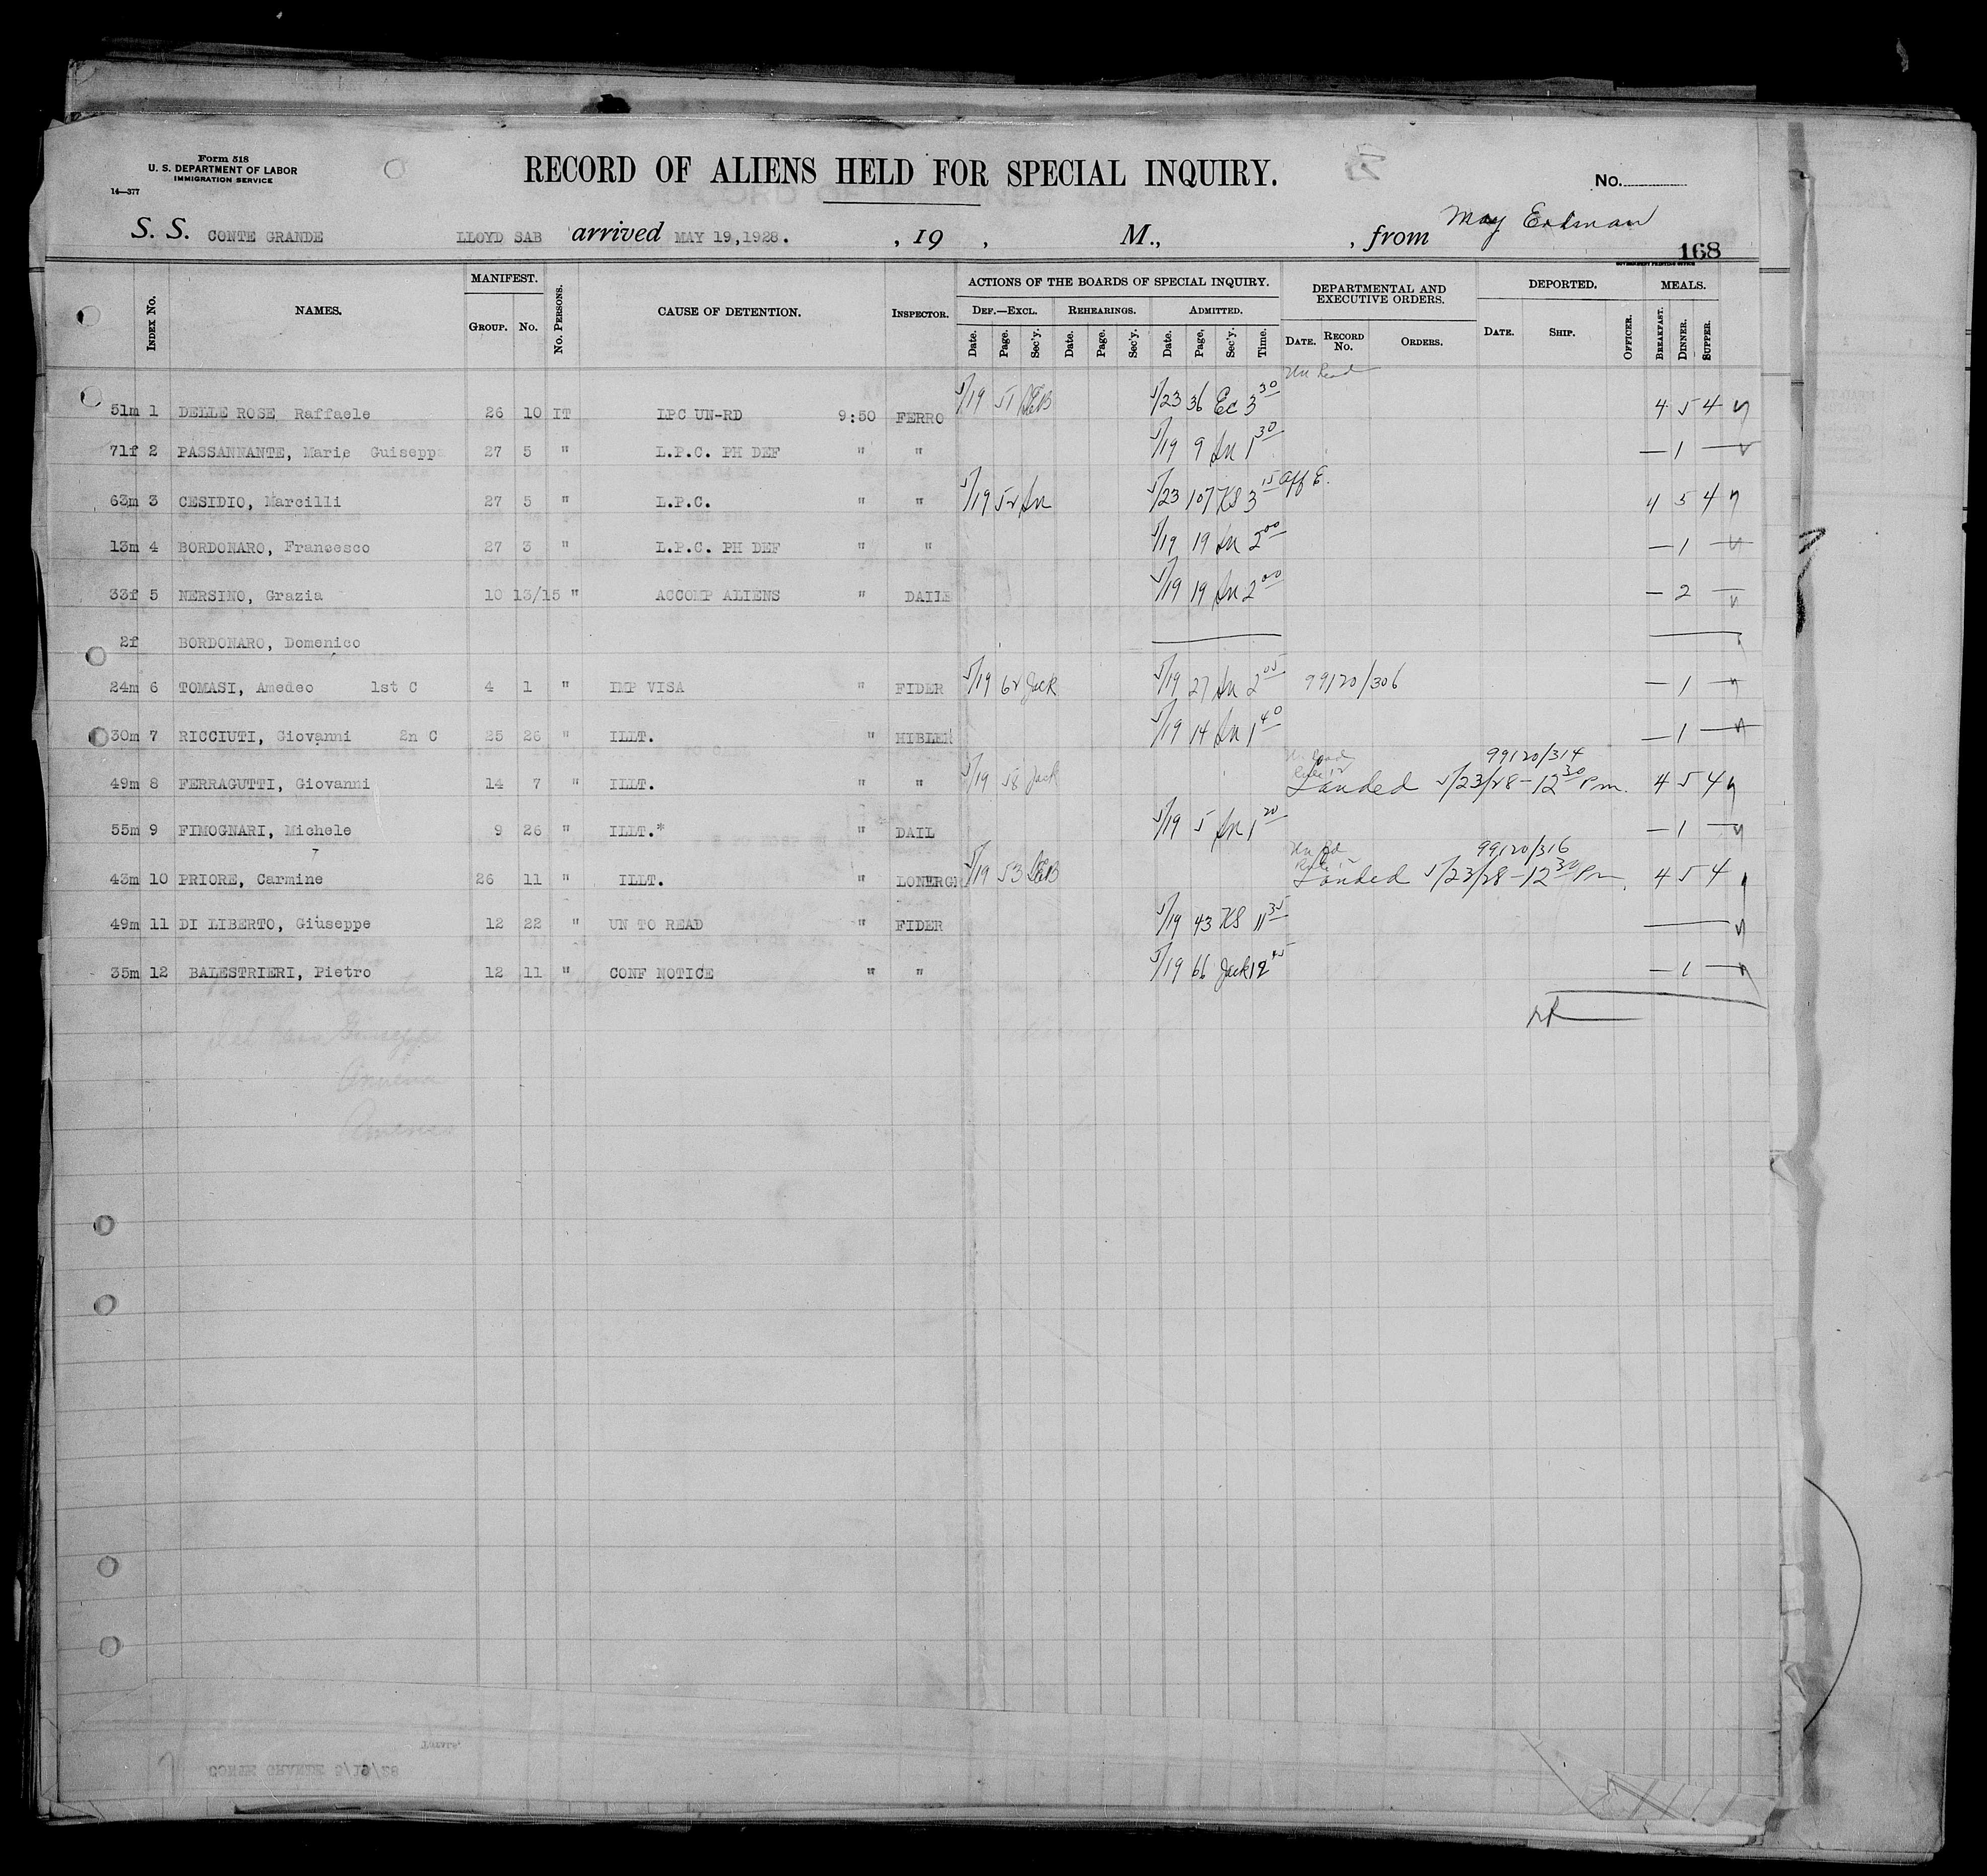 Form 518
U. S. DEPARTMENT OF LABOR
IMMIGRATION SERVICE
14—377
RECORD OF ALIENS HELD FOR SPECIAL INQUIRY.
No.
S. S. CONTE GRANDE LLOYD SAB arrived MAY 19,1928. , 19 , M., , from May Erdman
168
GOVERNMENT PRINTING OFFICE
Index No. NAMES. MANIFEST. Group. No. No. Persons. CAUSE OF DETENTION. Inspector. ACTIONS OF THE BOARDS OF SPECIAL INQUIRY. DEPARTMENTAL AND EXECUTIVE ORDERS. DEPORTED. MEALS.
Def.—Excl. Rehearings. Admitted.
Date. Page. Sec'y. Date. Page. Sec'y. Date. Page. Sec'y. Time. Date. Record No. Orders. Date. Ship. Officer. Breakfast. Dinner. Supper.
Un Read
51m 1 DELLE ROSE Raffaele 26 10 IT LPC UN-RD 9:50 FERRO 5/19 51 5/23 36 Ec 3 30 4 5 4
71f 2 PASSANNANTE, Marie Guisepp 27 5 " L.P.C. PH DEF " " 5/19 9 Sn 1 30 — 1 —
63m 3 CESIDIO, Marcilli 27 5 " L.P.C. " " 5/19 52 Sn 5/23 107 KS 3 15 Aff E. 4 5 4
13m 4 BORDONARO, Francesco 27 3 " L.P.C. PH DEF " " 5/19 19 Sn 2 00 — 1 —
33f 5 NERSINO, Grazia 10 13/15 " ACCOMP ALIENS " DAIL 5/19 19 Sn 2 00 — 2 —
2f BORDONARO, Domenico
24m 6 TOMASI, Amedeo 1st C 4 1 " IMP VISA " FIDER 5/19 62 Jack 5/19 27 Sn 2 05 99120/306 — 1 —
30m 7 RICCIUTI, Giovanni 2n C 25 26 " ILLT. " HIBLER 5/19 14 Sn 1 40 — 1 —
Un Read 99120/314
49m 8 FERRAGUTTI, Giovanni 14 7 " ILLT. " " 5/19 58 Jack Landed 5/23/28 – 12 30 Pm. 4 5 4
55m 9 FIMOGNARI, Michele 9 26 " ILLT.* " DAIL 5/19 5 Sn 1 20 — 1 —
Un Rd 99120/316
43m 10 PRIORE, Carmine 26 11 " ILLT. " LONERGR 5/19 53 Landed 5/23/28 – 12 30 Pm 4 5 4
49m 11 DI LIBERTO, Giuseppe 12 22 " UN TO READ " FIDER 5/19 43 KS 11 35
35m 12 BALESTRIERI, Pietro 12 11 " CONF NOTICE " " 5/19 66 Jack 12 45 — 1 —
CONTE GRANDE 5/19/28